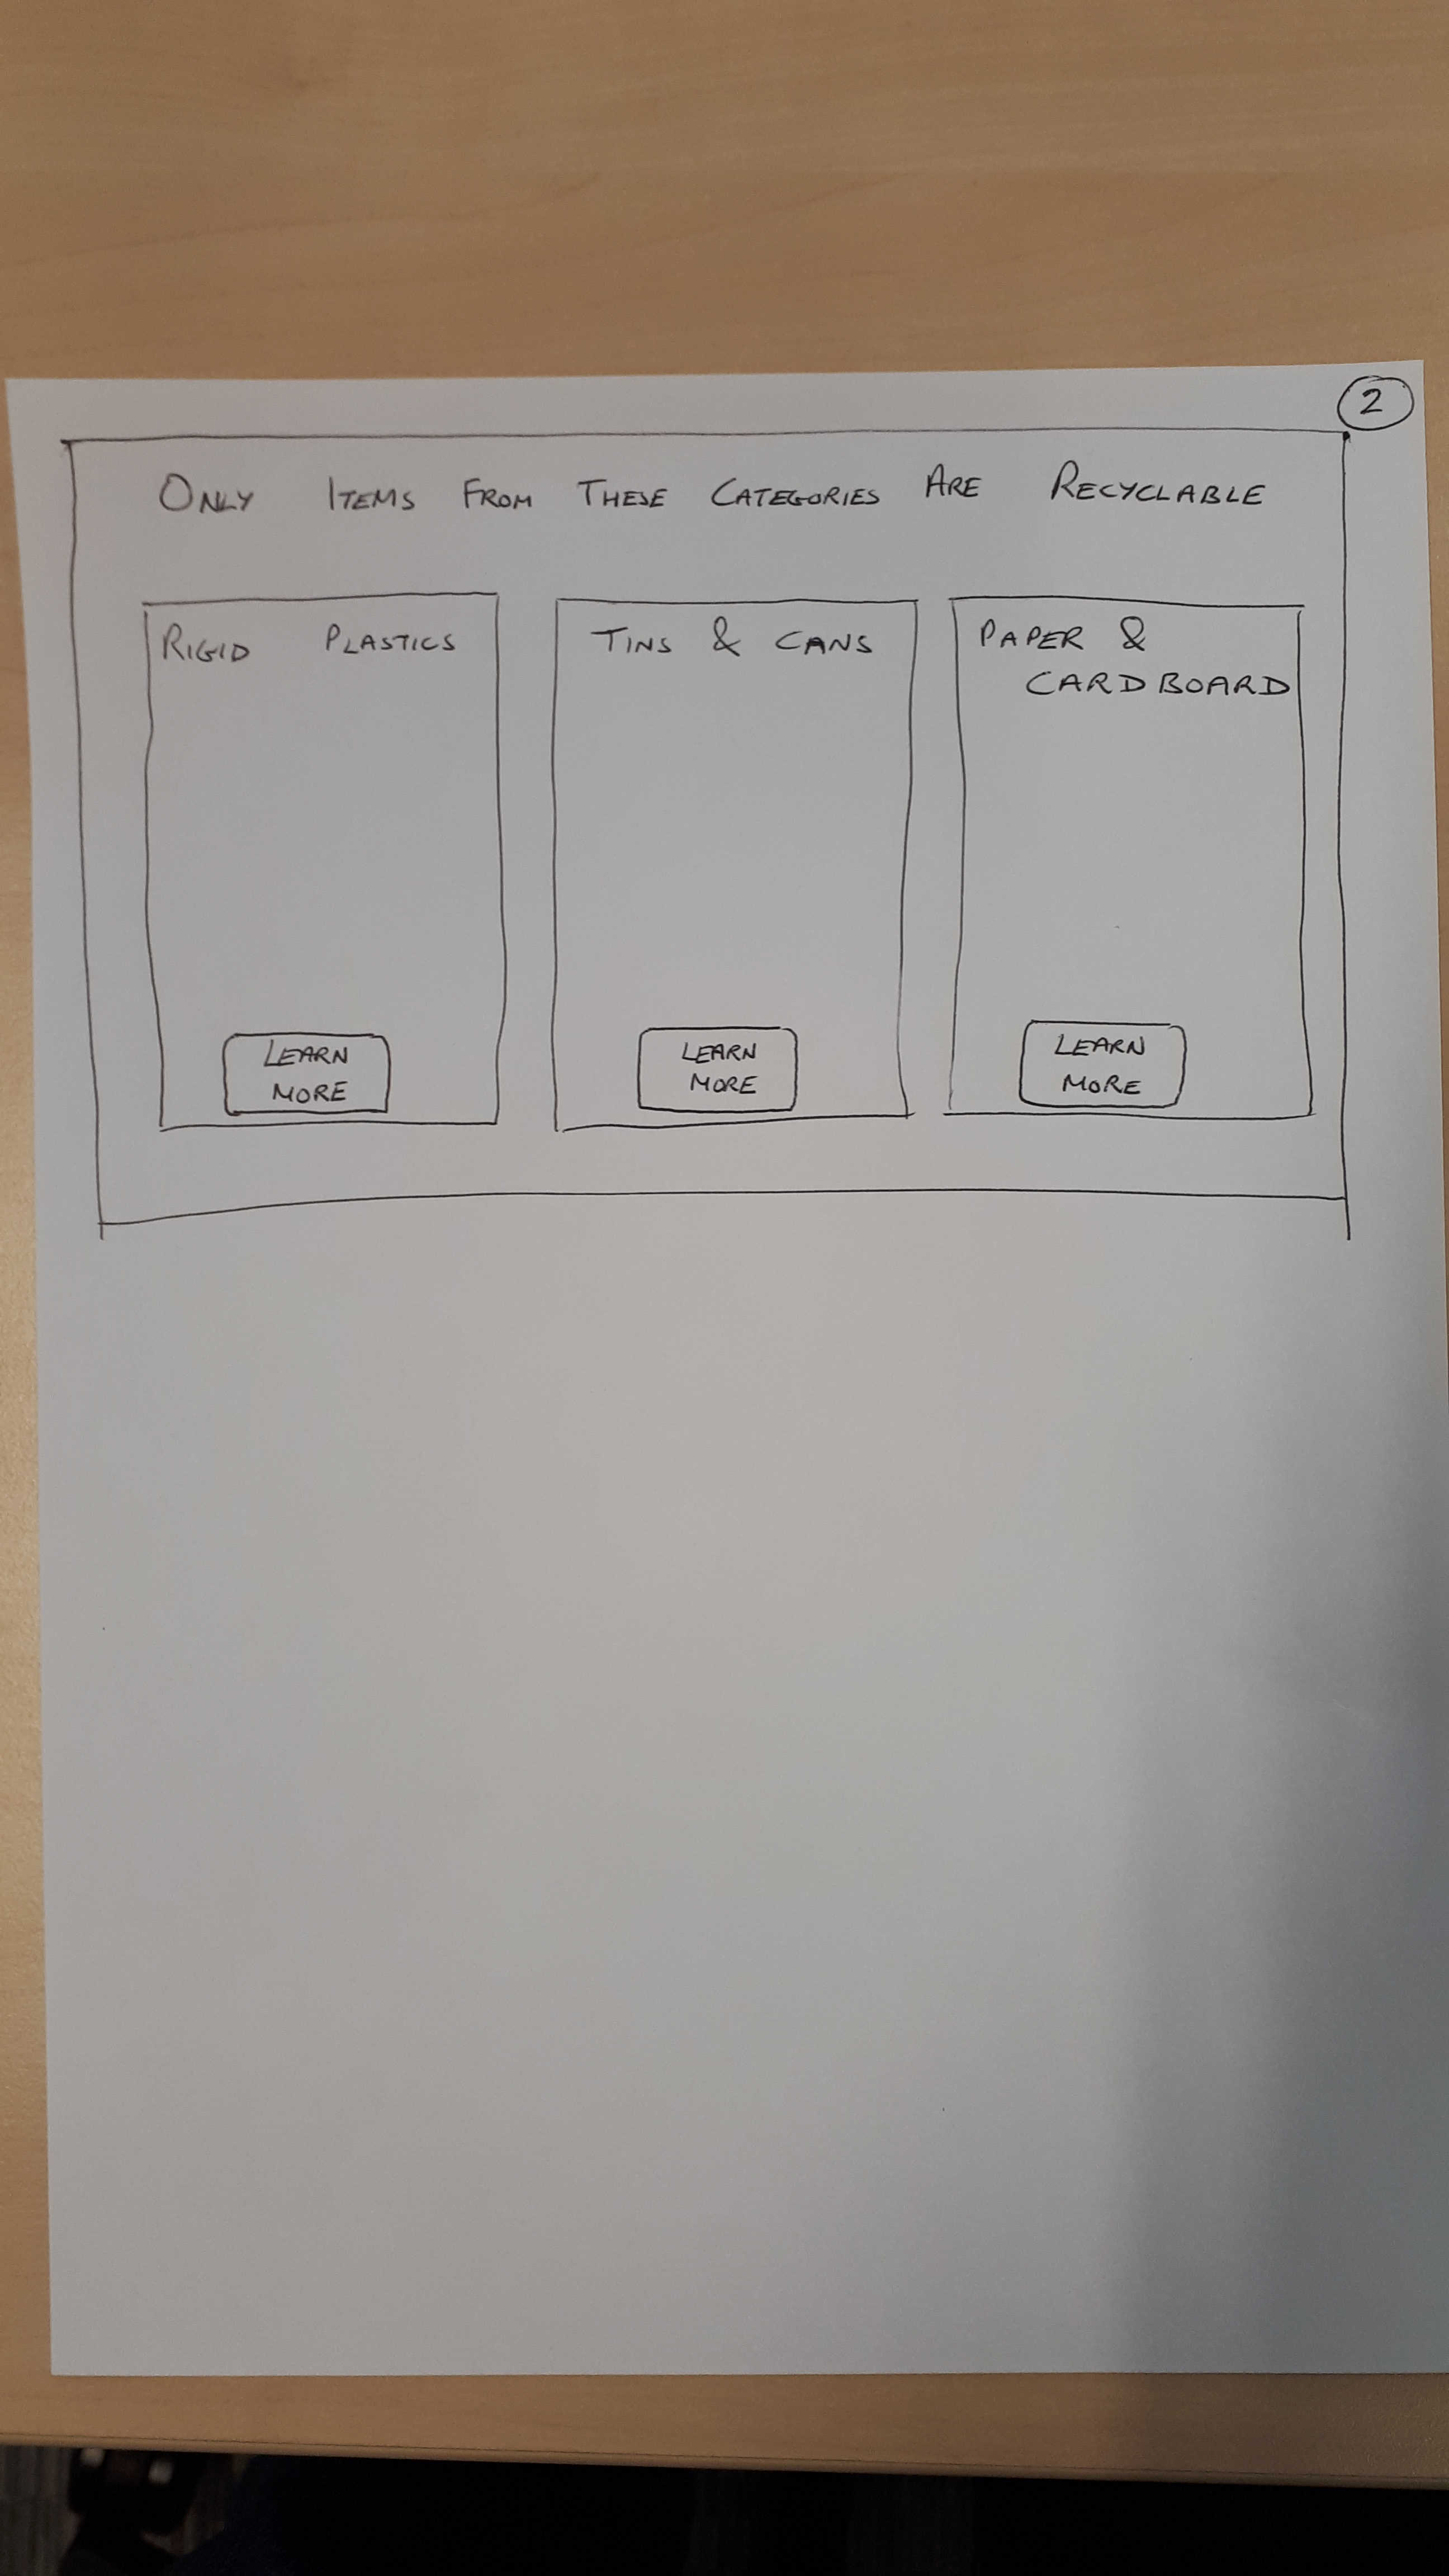 2
ONLY ITEMS FROM THESE CATEGORIES ARE RECYCLABLE
RIGID PLASTICS
LEARN
MORE
TINS & CANS
LEARN
MORE
PAPER &
CARDBOARD
LEARN
MORE